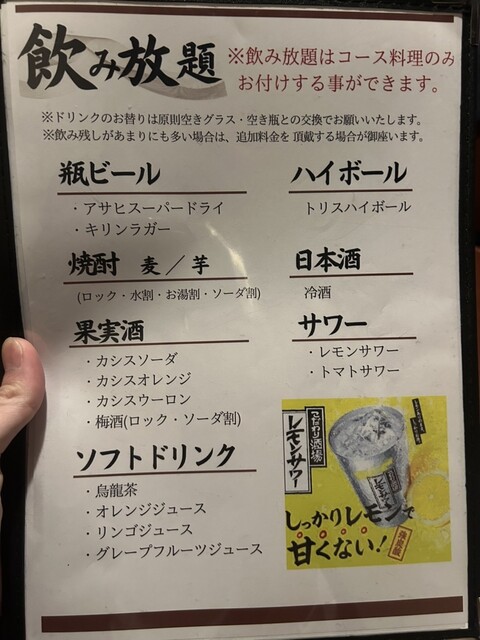 飲み放題
※飲み放題はコース料理のみ
お付けする事ができます。
※ドリンクのお替りは原則空きグラス・空き瓶との交換でお願いいたします。
※飲み残しがあまりにも多い場合は、追加料金を頂戴する場合が御座います。
瓶ビール
・アサヒスーパードライ
・キリンラガー
ハイボール
トリスハイボール
焼酎 麦／芋
(ロック・水割・お湯割・ソーダ割)
日本酒
冷酒
果実酒
・カシスソーダ
・カシスオレンジ
・カシスウーロン
・梅酒(ロック・ソーダ割)
サワー
・レモンサワー
・トマトサワー
ソフトドリンク
・烏龍茶
・オレンジジュース
・リンゴジュース
・グレープフルーツジュース
こだわり酒場
レモンサワー
しっかりレモンで
甘くない!